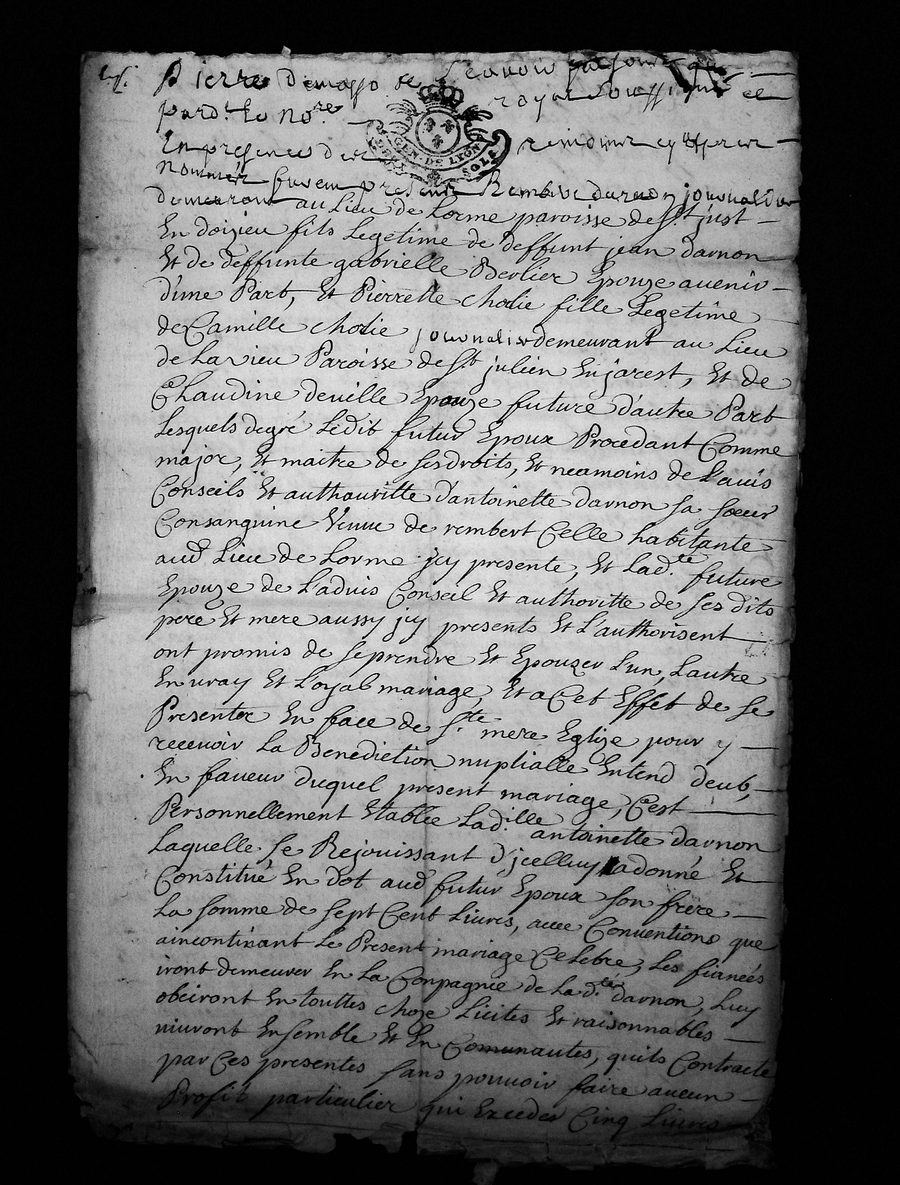 Pierre
pard.t le no.re royal soussigné et
GEN. DE LYON
SOLS
En presence des temoins cy apres
nommés furent presents Rembert darnon journalier
demeurant au Lieu de Lorme paroisse de St just
En doizieu fils Legetime de deffunt jean darnon
Et de deffunte gabrielle Berlier Epouze avenir
d'une Part, Et Pierrette chodie fille Legetime
de Camille chodie journalier demeurant au Lieu
de La vieu Paroisse de St julien En jarest, Et de
Claudine deville Epouze future d'autre Part
Lesquels degré Ledit futur Epoux Procedant Comme
major, Et maitre de ses droits, Et neamoins de L'avis
Conseils Et authauritte d'antoinette darnon sa soeur
Consanguine Veuve de rembert Celle habitante
aud Lieu de Lorme jcy presente, Et Lad.te future
Epouze de L'advis Conseil Et authoritte de ses dits
pere Et mere aussy jcy presents Et L'authorisent
ont promis de se prendre Et Epouzer L'un, L'autre
En vray Et Loyal mariage, Et a Cet Effet de se
Presenter En face de S.te mere Eglize pour y
recevoir La Benediction nuptialle Entend deub,
En faveur duquel present mariage, C'est
Personnellement Etablie Lad.
antoinette darnon
Laquelle se Rejouissant d'jcelluy a donné Et
Constitué En dot aud futur Epoux son frere
La somme de sept Cent Livres, avec Conventions que
aincontinant Le Present mariage Celebre, Les fiancés
iront demeurer En La Compagnie de La d.te darnon, Luy
obeiront En touttes choze Licites Et raisonnables
vivront Ensemble Et En Comunautes, quils Contracte
par Ces presentes sans pouvoir faire aucun
Profit particulier qui Excedes Cinq Livres